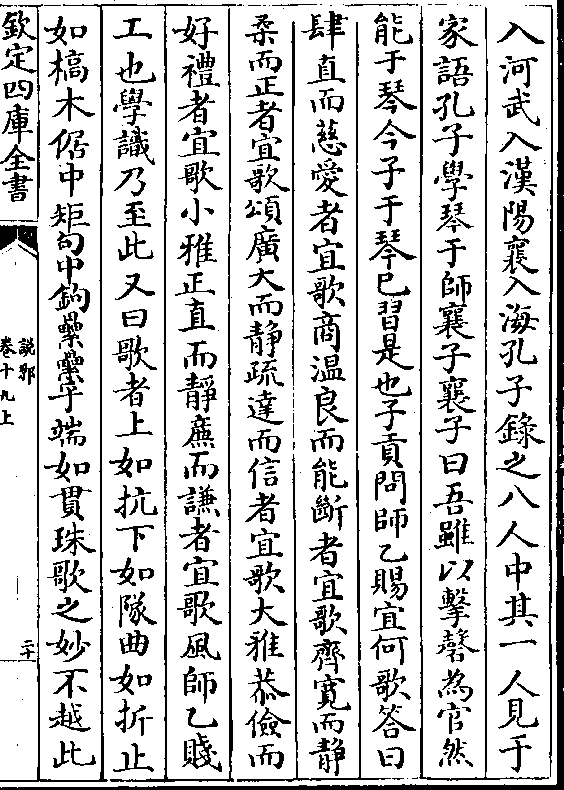 入河武入漢陽襄入海孔子錄之八人中其一人見于
家語孔子學琴于師襄子襄子曰吾雖以擊磬為官然
能于琴今子于琴已習是也子貢問師乙賜宜何歌答曰
肆直而慈愛者宜歌商温良而能斷者宜歌齊寛而静
柔而正者宜歌頌廣大而静疏達而信者宜歌大雅恭儉而
好禮者宜歌小雅正直而靜廉而謙者宜歌風師乙賤
工也學識乃至此又曰歌者上如抗下如隊曲如折止
如槁木倨中矩句中鉤纍纍乎端如貫珠歌之妙不越此
欽定四庫全書
說郛
卷十九上
二十